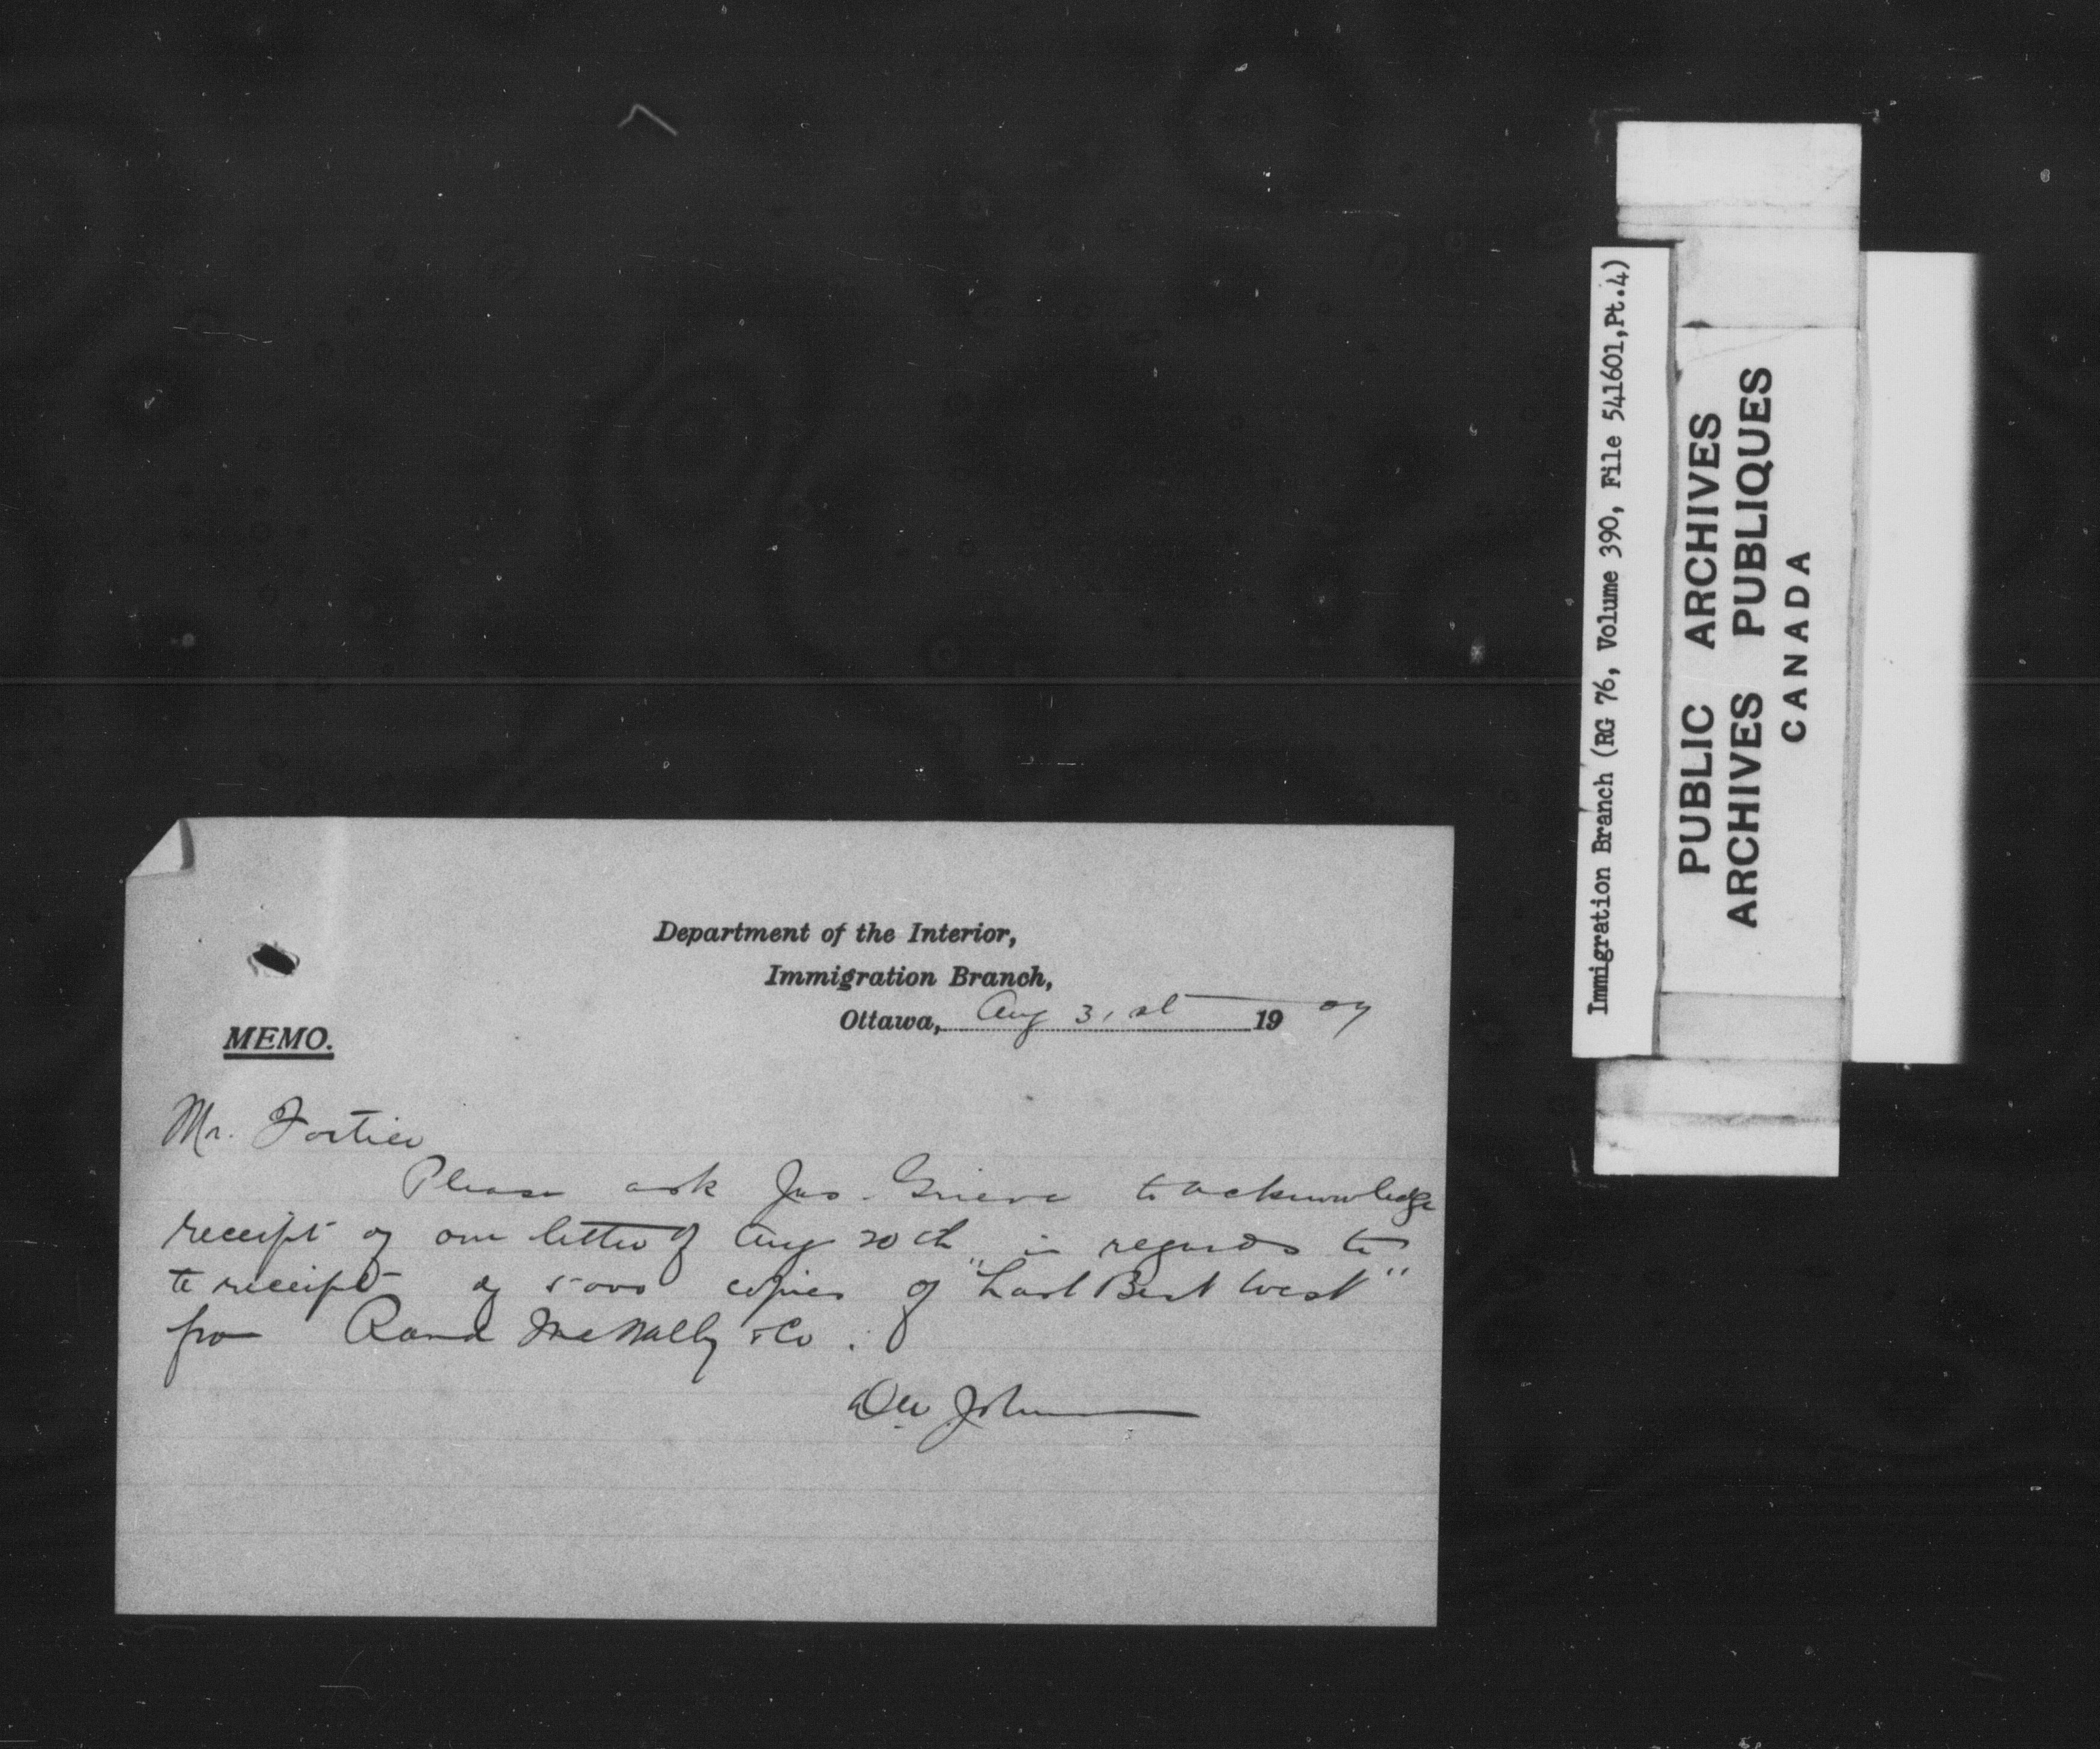 Department of the Interior,
Immigration Branch,
Ottawa, Aug 31st 1909
MEMO.
Mr. Fortier
Please ask Jas. Grieve to acknowledge
receipt of our letter of Aug 20th in regards to
te receipt of 5000 copies of "Last Best West"
from Rand McNally & Co.
Immigration Branch (RG 76, Volume 390, File 541601,Pt.4)
PUBLIC ARCHIVES
ARCHIVES PUBLIQUES
CANADA